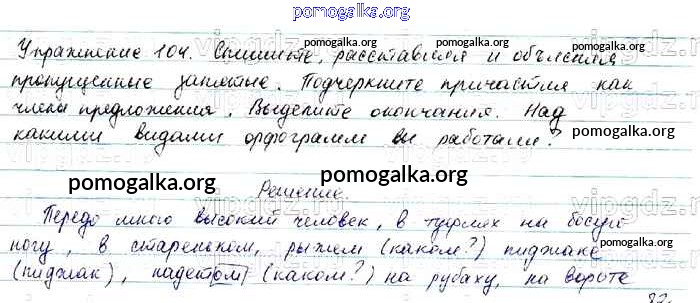 pomogalka.org
Упражнение 104. Спишите, расставляя и объясняя
пропущенные запятые. Подчеркните причастия как
члены предложения. Выделите окончания. Над
какими видами орфограмм вы работали?
pomogalka.org
pomogalka.org
pomogalka.org
pomogalka.org
pomogalka.org
vipgdz.ru
Решение
Передо мною высокий человек, в туфлях на босую
ногу, в стареньком, рыжем (каком?) пиджаке
(пиджак), надетом (каком?) на рубаху, на вороте
pomogalka.org
pomogalka.org